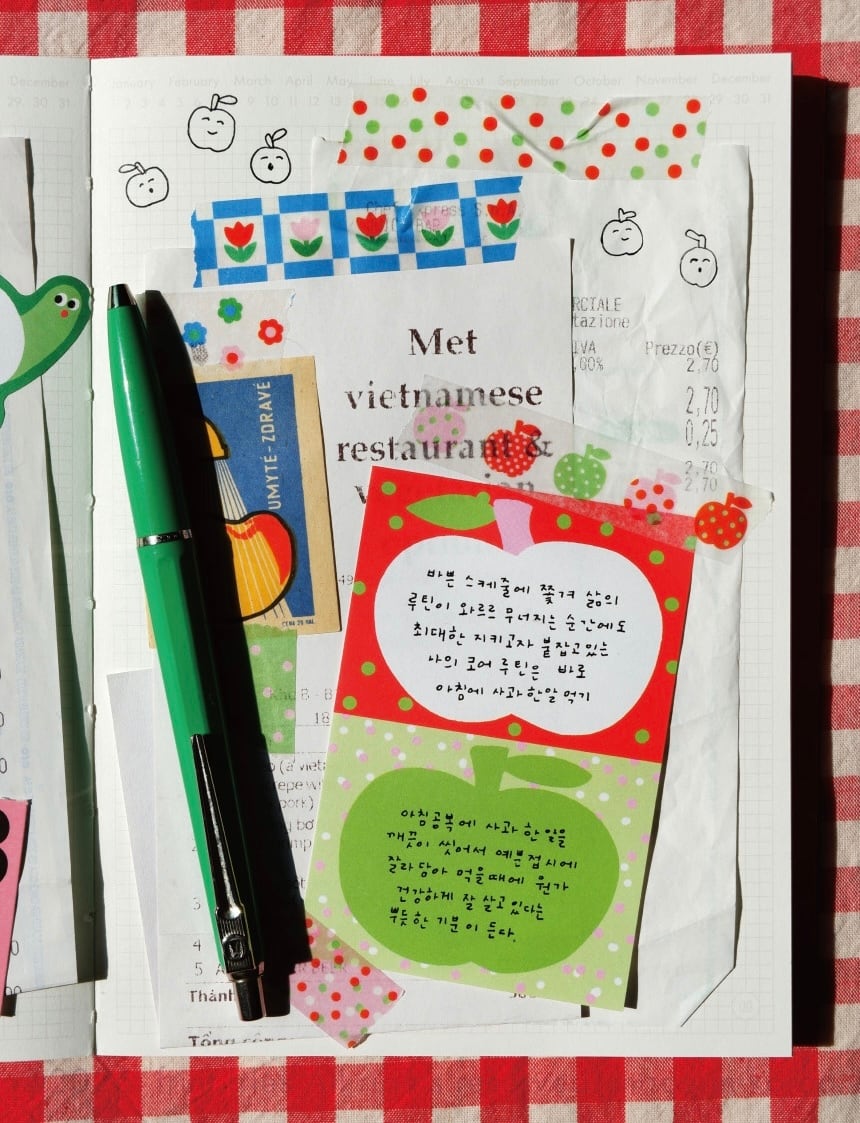 December
January February March April May June July August September October November December
29 30 31
29 30 31
Chef Express S.
BAR
RCIALE
tazione
IVA Prezzo(€)
,00% 2,70
2,70
0,25
2,70
2,70
Met
vietnamese
restaurant &
UMYTÉ-ZDRAVÉ
CENA 20 HAL
바쁜 스케줄에 쫓겨 삶의
루틴이 와르르 무너지는 순간에도
최대한 지키고자 붙잡고 있는
나의 코어 루틴은 바로
아침에 사과 한 알 먹기
아침 공복에 사과 한 알을
깨끗이 씻어서 예쁜 접시에
잘라 담아 먹을 때에 뭔가
건강하게 잘 살고 있다는
뿌듯한 기분이 든다.
49
18
(à viet
epe w
pork)
bơ
3
4
5
Thành
Tổng cộng